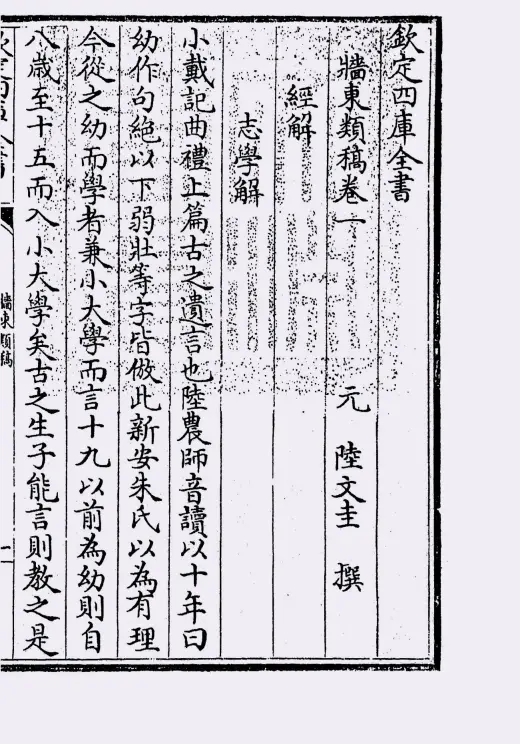 欽定四庫全書
牆東類稿卷一 元 陸文圭 撰
經解
志學解
小戴記曲禮上篇古之遺言也陸農師音讀以十年曰
幼作句絕以下弱壯等字皆倣此新安朱氏以為有理
今從之幼而學者兼小大學而言十九以前為幼則自
八歲至十五而入小大學矣古之生子能言則教之是
牆東類稿